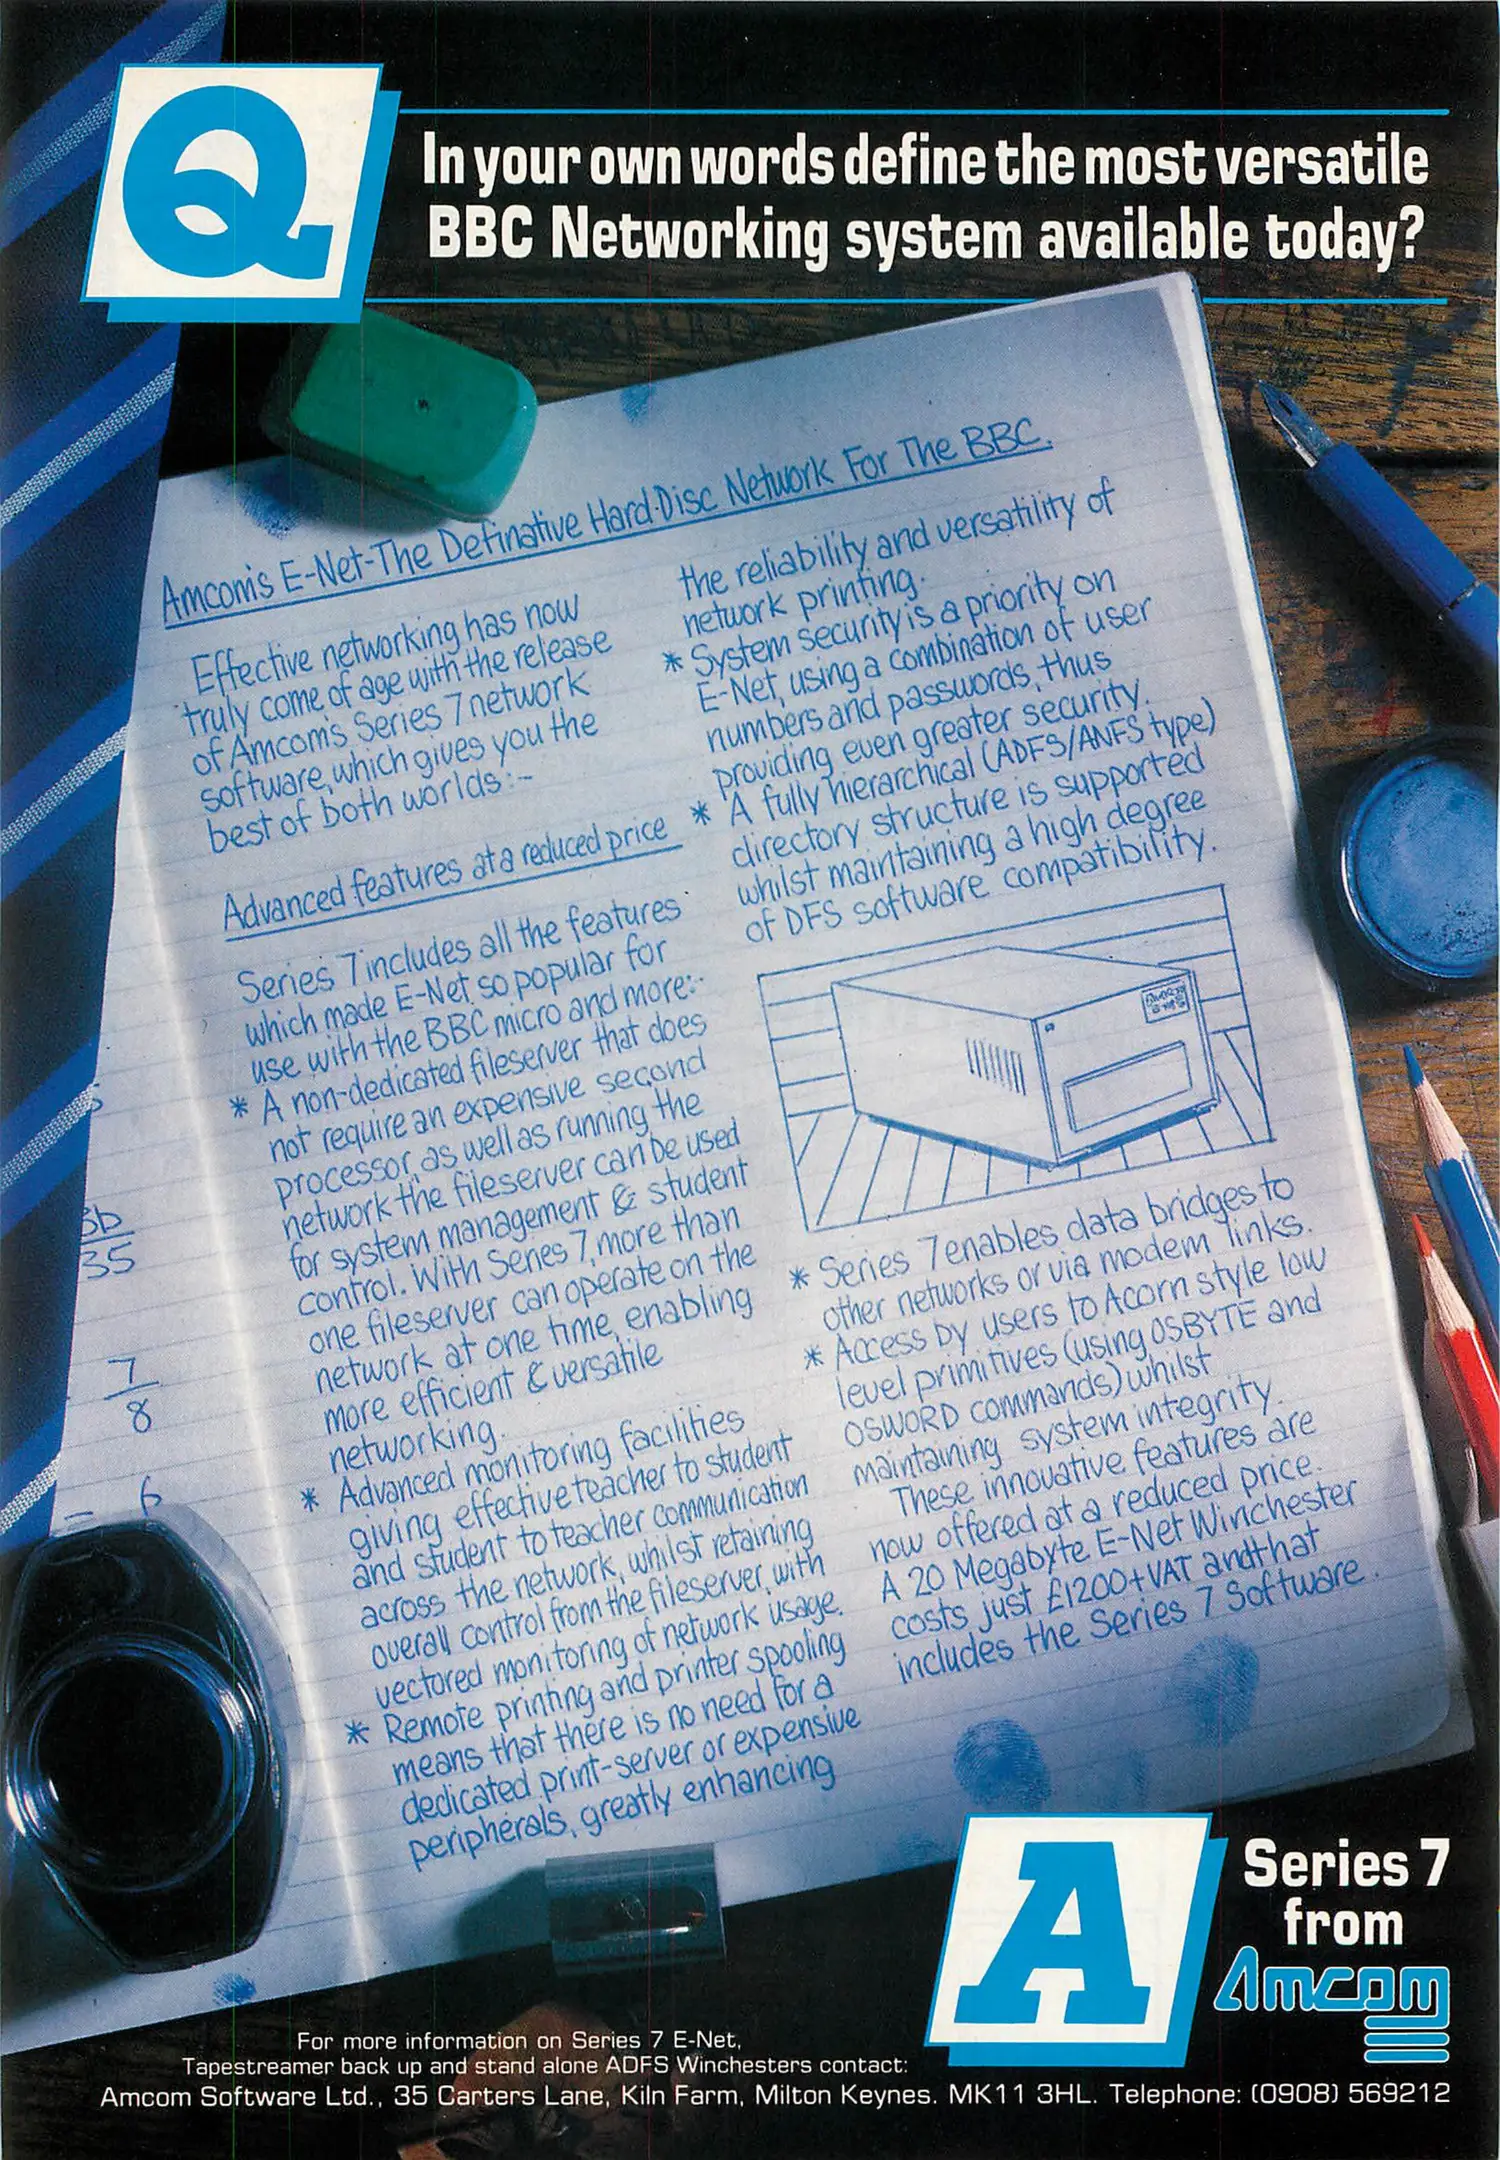 Q
In your own words define the most versatile
BBC Networking system available today?
Amcom's E-Net-The Definative Hard-Disc Network For The BBC.
Effective networking has now
truly come of age with the release
of Amcom's Series 7 network
software, which gives you the
best of both worlds:-
Advanced features at a reduced price
Series 7 includes all the features
which made E-Net so popular for
use with the BBC micro and more:-
* A non-dedicated fileserver that does
not require an expensive second
processor, as well as running the
network the fileserver can be used
for system management & student
control. With Series 7, more than
one fileserver can operate on the
network at one time, enabling
more efficient & versatile
networking.
* Advanced monitoring facilities
giving effective teacher to student
and student to teacher communication
across the network, whilst retaining
overall control from the fileserver, with
vectored monitoring of network usage.
* Remote printing and printer spooling
means that there is no need for a
dedicated print-server or expensive
peripherals, greatly enhancing
the reliability and versatility of
network printing.
* System security is a priority on
E-Net, using a combination of user
numbers and passwords, thus
providing even greater security.
* A fully hierarchical (ADFS/ANFS type)
directory structure is supported
whilst maintaining a high degree
of DFS software compatibility.
* Series 7 enables data bridges to
other networks or via modem links.
* Access by users to Acorn style low
level primitives (using OSBYTE and
OSWORD commands) whilst
maintaining system integrity.
These innovative features are
now offered at a reduced price.
A 20 Megabyte E-Net Winchester
costs just £1200+VAT and that
includes the Series 7 Software.
3b
35
7
8
6
A
Series 7
from
Amcom
For more information on Series 7 E-Net,
Tapestreamer back up and stand alone ADFS Winchesters contact:
Amcom Software Ltd., 35 Carters Lane, Kiln Farm, Milton Keynes. MK11 3HL. Telephone: (0908) 569212